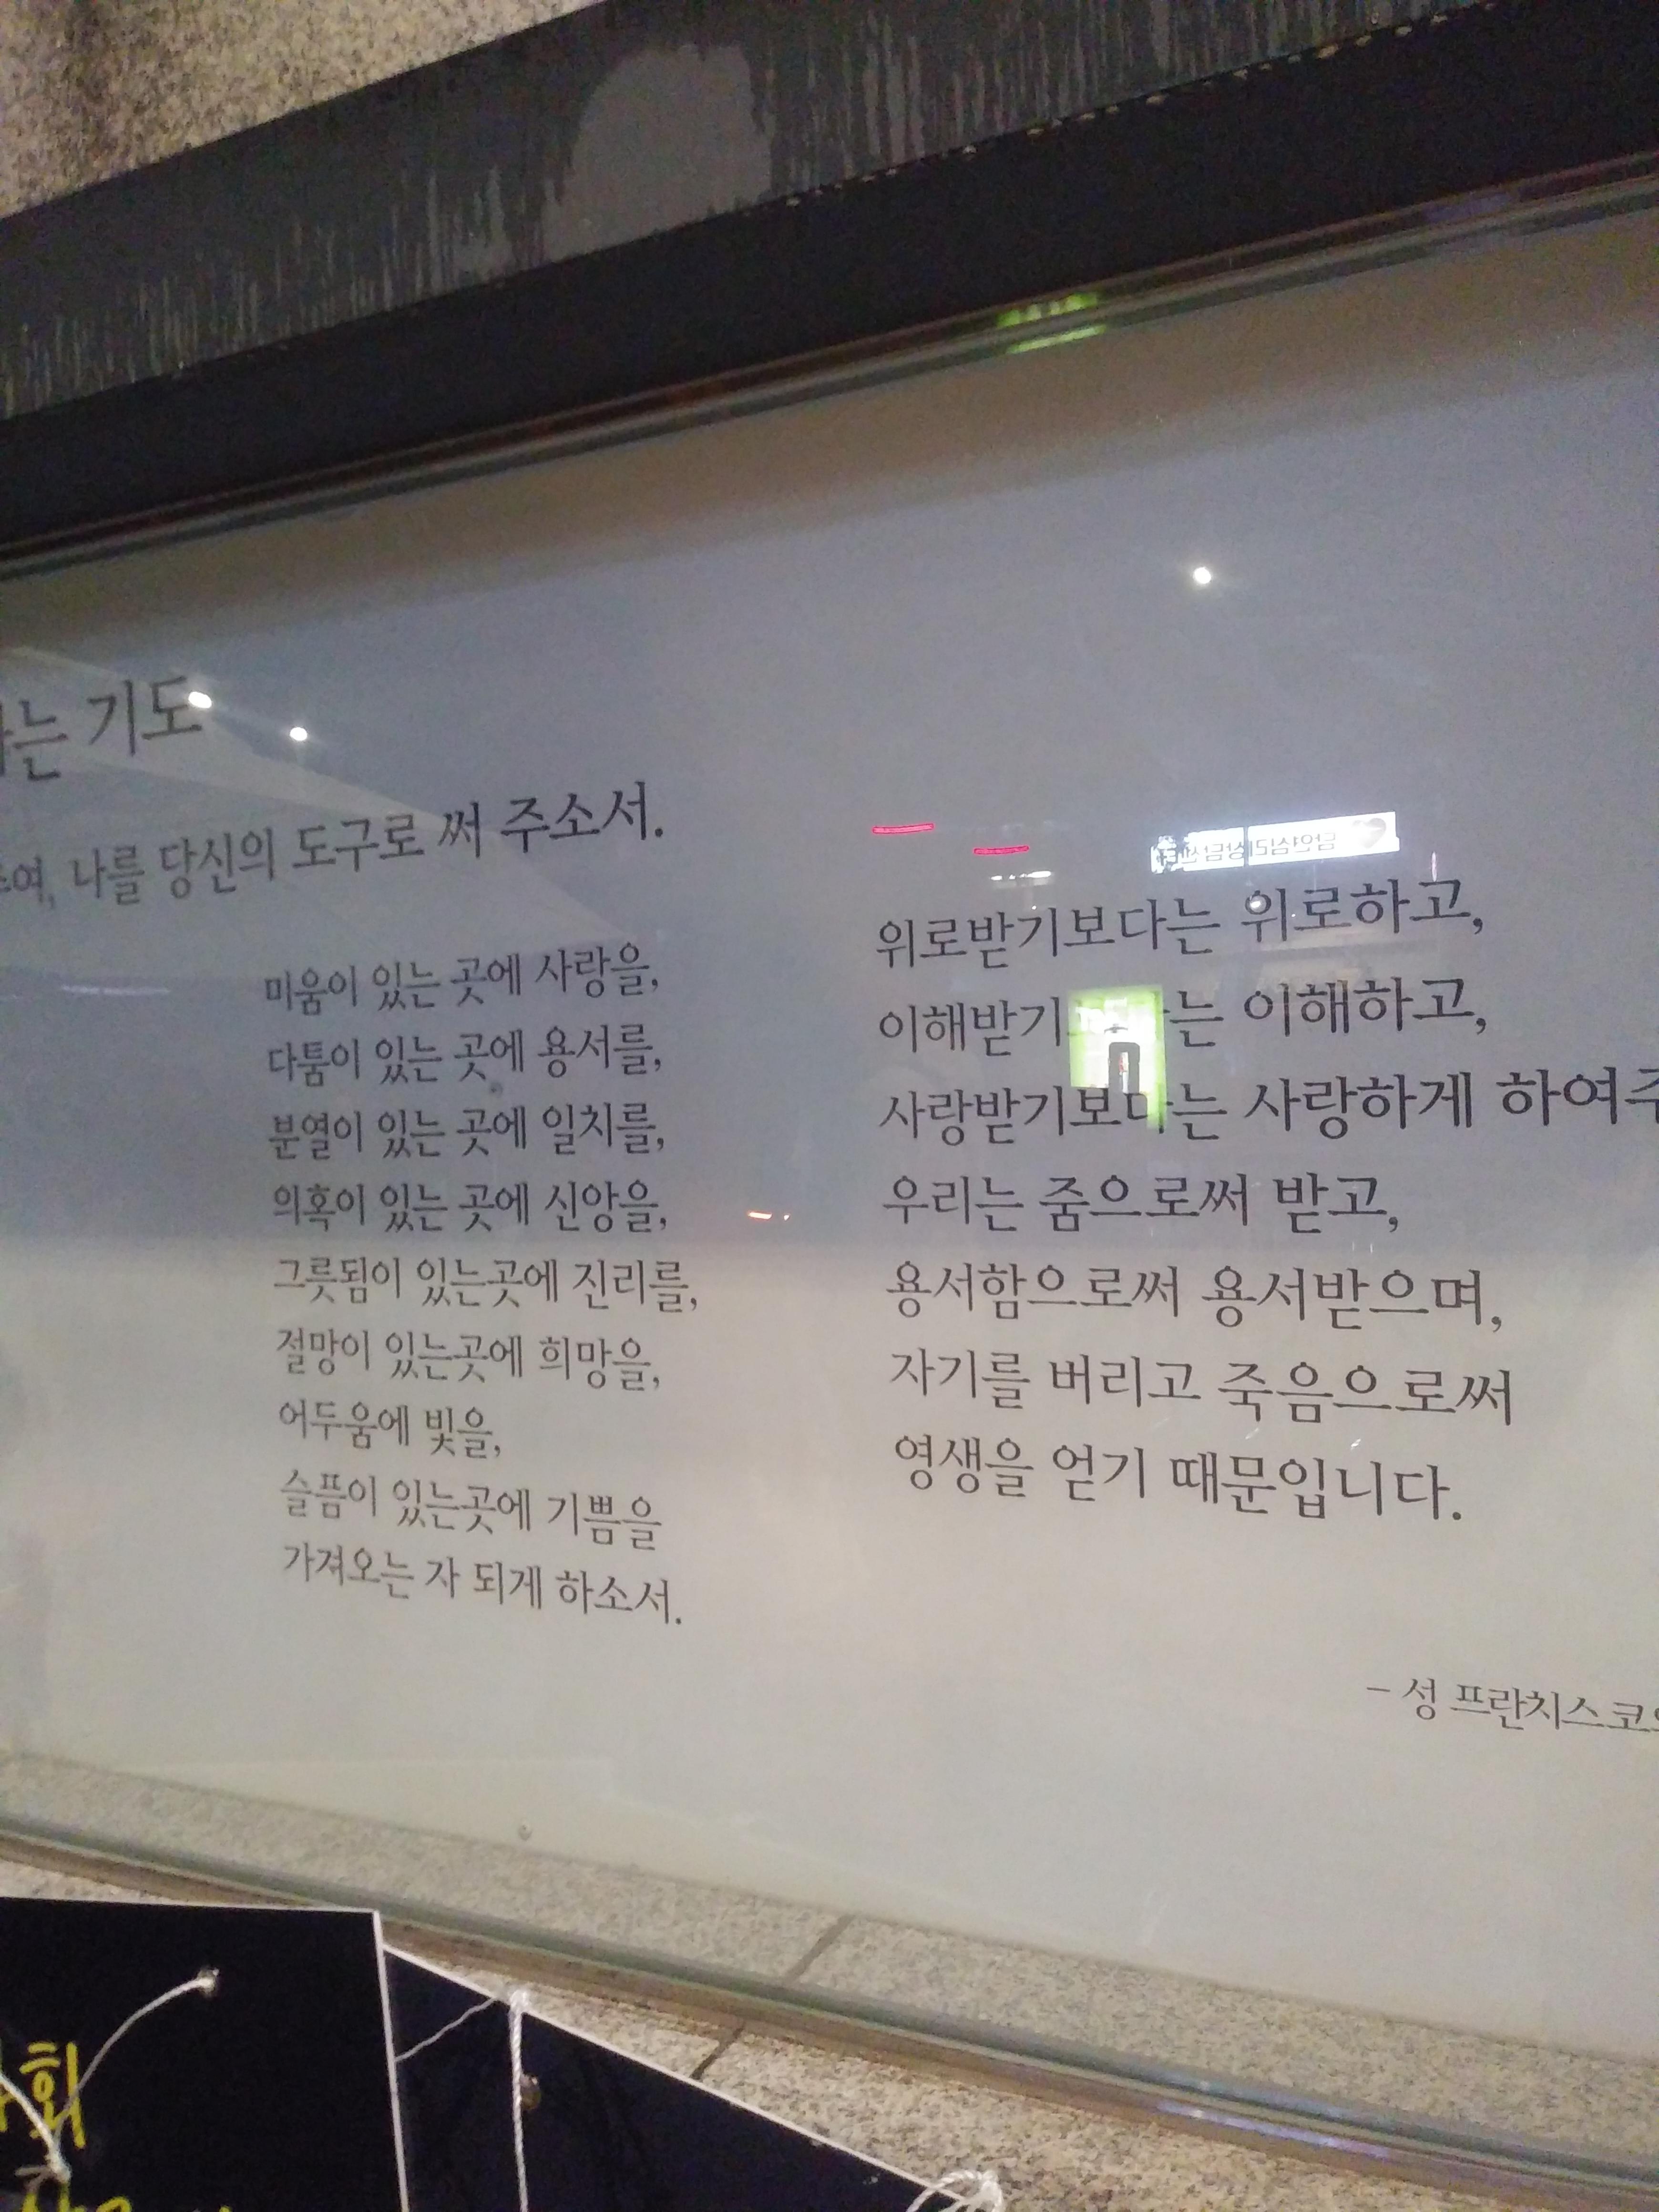 는 기도
여, 나를 당신의 도구로 써 주소서.
미움이 있는 곳에 사랑을,
다툼이 있는 곳에 용서를,
분열이 있는 곳에 일치를,
의혹이 있는 곳에 신앙을,
그릇됨이 있는곳에 진리를,
절망이 있는곳에 희망을,
어두움에 빛을,
슬픔이 있는곳에 기쁨을
가져오는 자 되게 하소서.
위로받기보다는 위로하고,
이해받기 는 이해하고,
사랑받기보다는 사랑하게 하여주
우리는 줌으로써 받고,
용서함으로써 용서받으며,
자기를 버리고 죽음으로써
영생을 얻기 때문입니다.
- 성 프란치스코
회